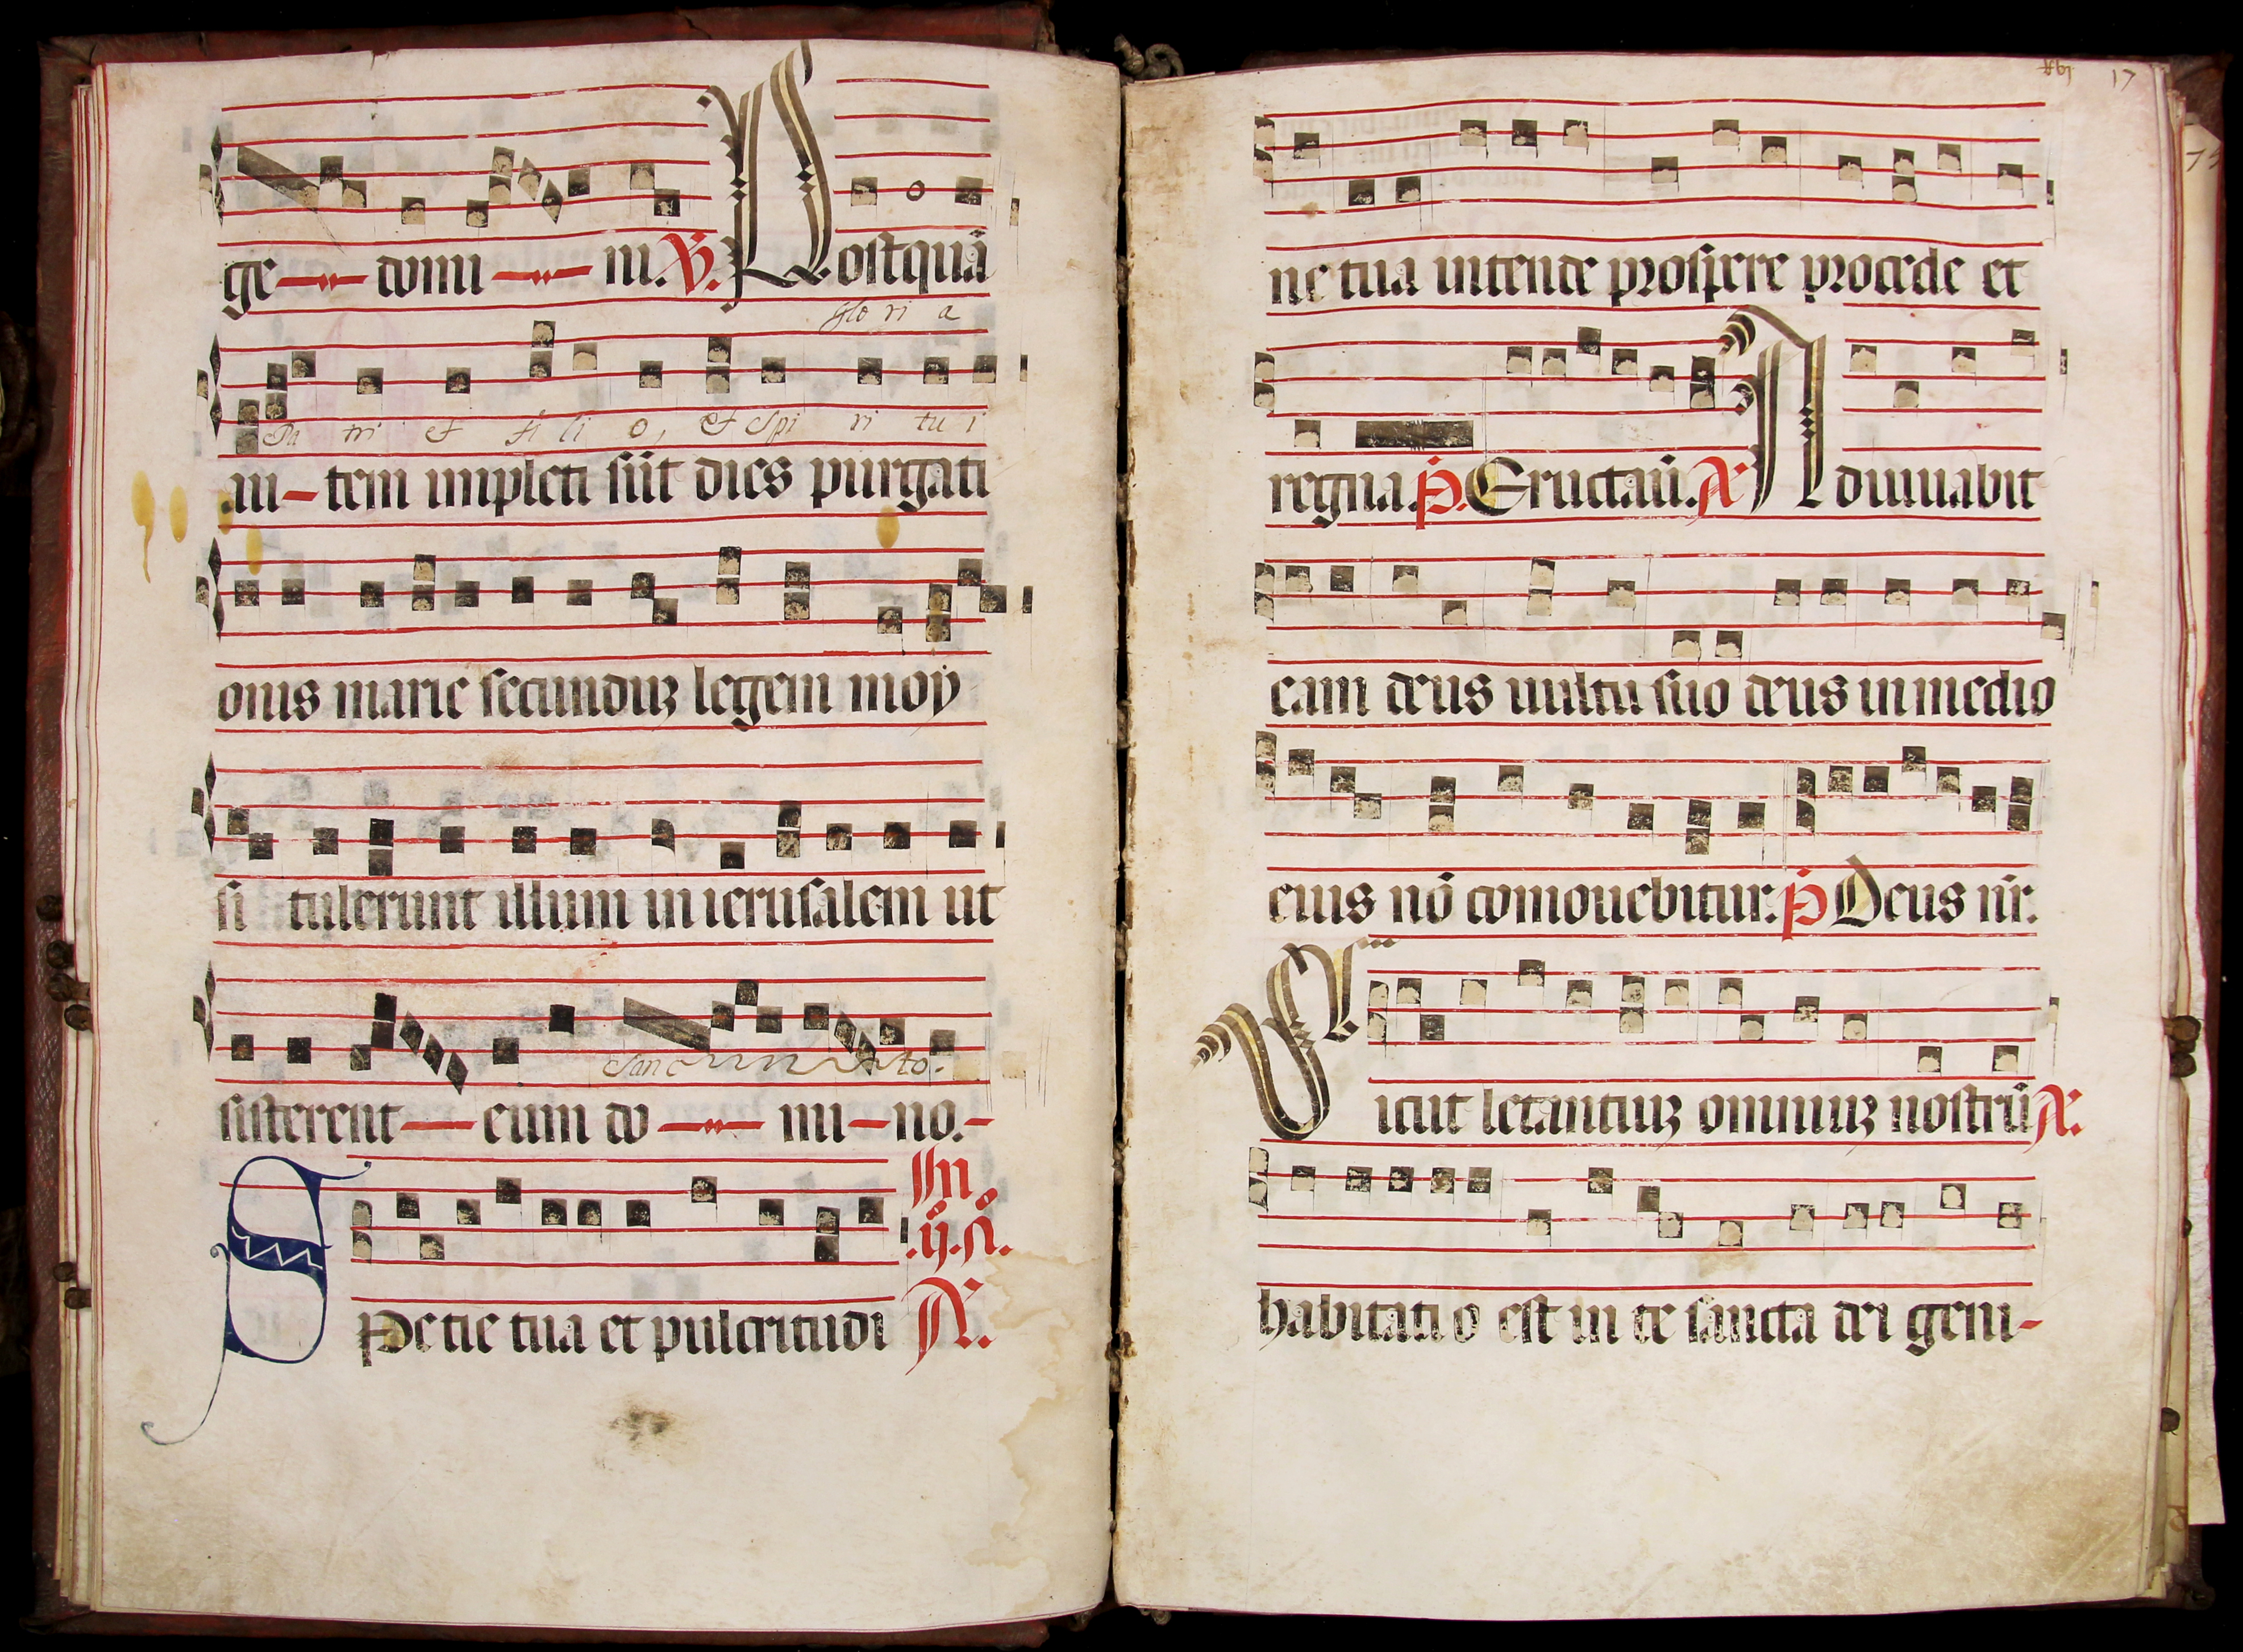 ge domi ni. ℣. Postquã
Glo ri a
Pa tri et fi li o, et Spi ri tu i
au-tem impleti sũt dies purgati
onis marie secunduꝫ legem moy
si tulerunt illum in ierusalem ut
Sanc to.
sisterent eum do mi-no.-
In
.ij. ñ.
SPetie tua et pulcritudi A.
17
ne tua intende prospere procede et
regna. p̃. Eructaũ. A Adiuuabit
eam deus uultu suo deus in medio
eius nõ comouebitur. p̃ Deus nr̃.
Sicut letantiuꝫ omniuꝫ nostrũ A.
habitatio est in te sancta dei geni-